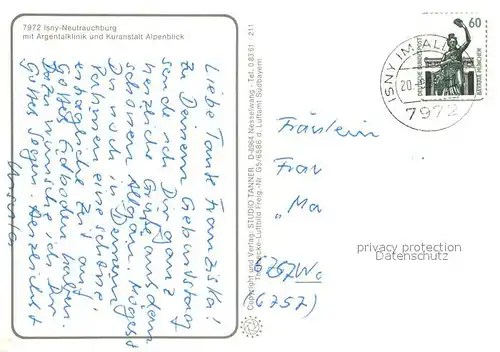 7972 Isny-Neutrauchburg
mit Argentalklinik und Kuranstalt Alpenblick
Liebe Tante Franziska!
Zu Deinem Geburtstag
sende ich Dir ganz
herzliche Grüße aus dem
schönen Allgäu. Mögest
Du noch in Deinem
Rahmen eine schöne
erträgliche Zeit auf
Gottes Erdboden haben.
Dazu wünsche ich Dir
Gottes Segen. Herzlichst
Copyright und Verlag: STUDIO TANNER D-8964 Nesselwang - Tel. 08361 211
Freig.-Nr. G5/6586 d. Luftamt Südbayern
60
DEUTSCHE BUNDESPOST
BAVARIA MÜNCHEN
ISNY IM ALL
20.
7972
Fräulein
Frau
"Ma
6757 Wa
(6757)
privacy protection
Datenschutz